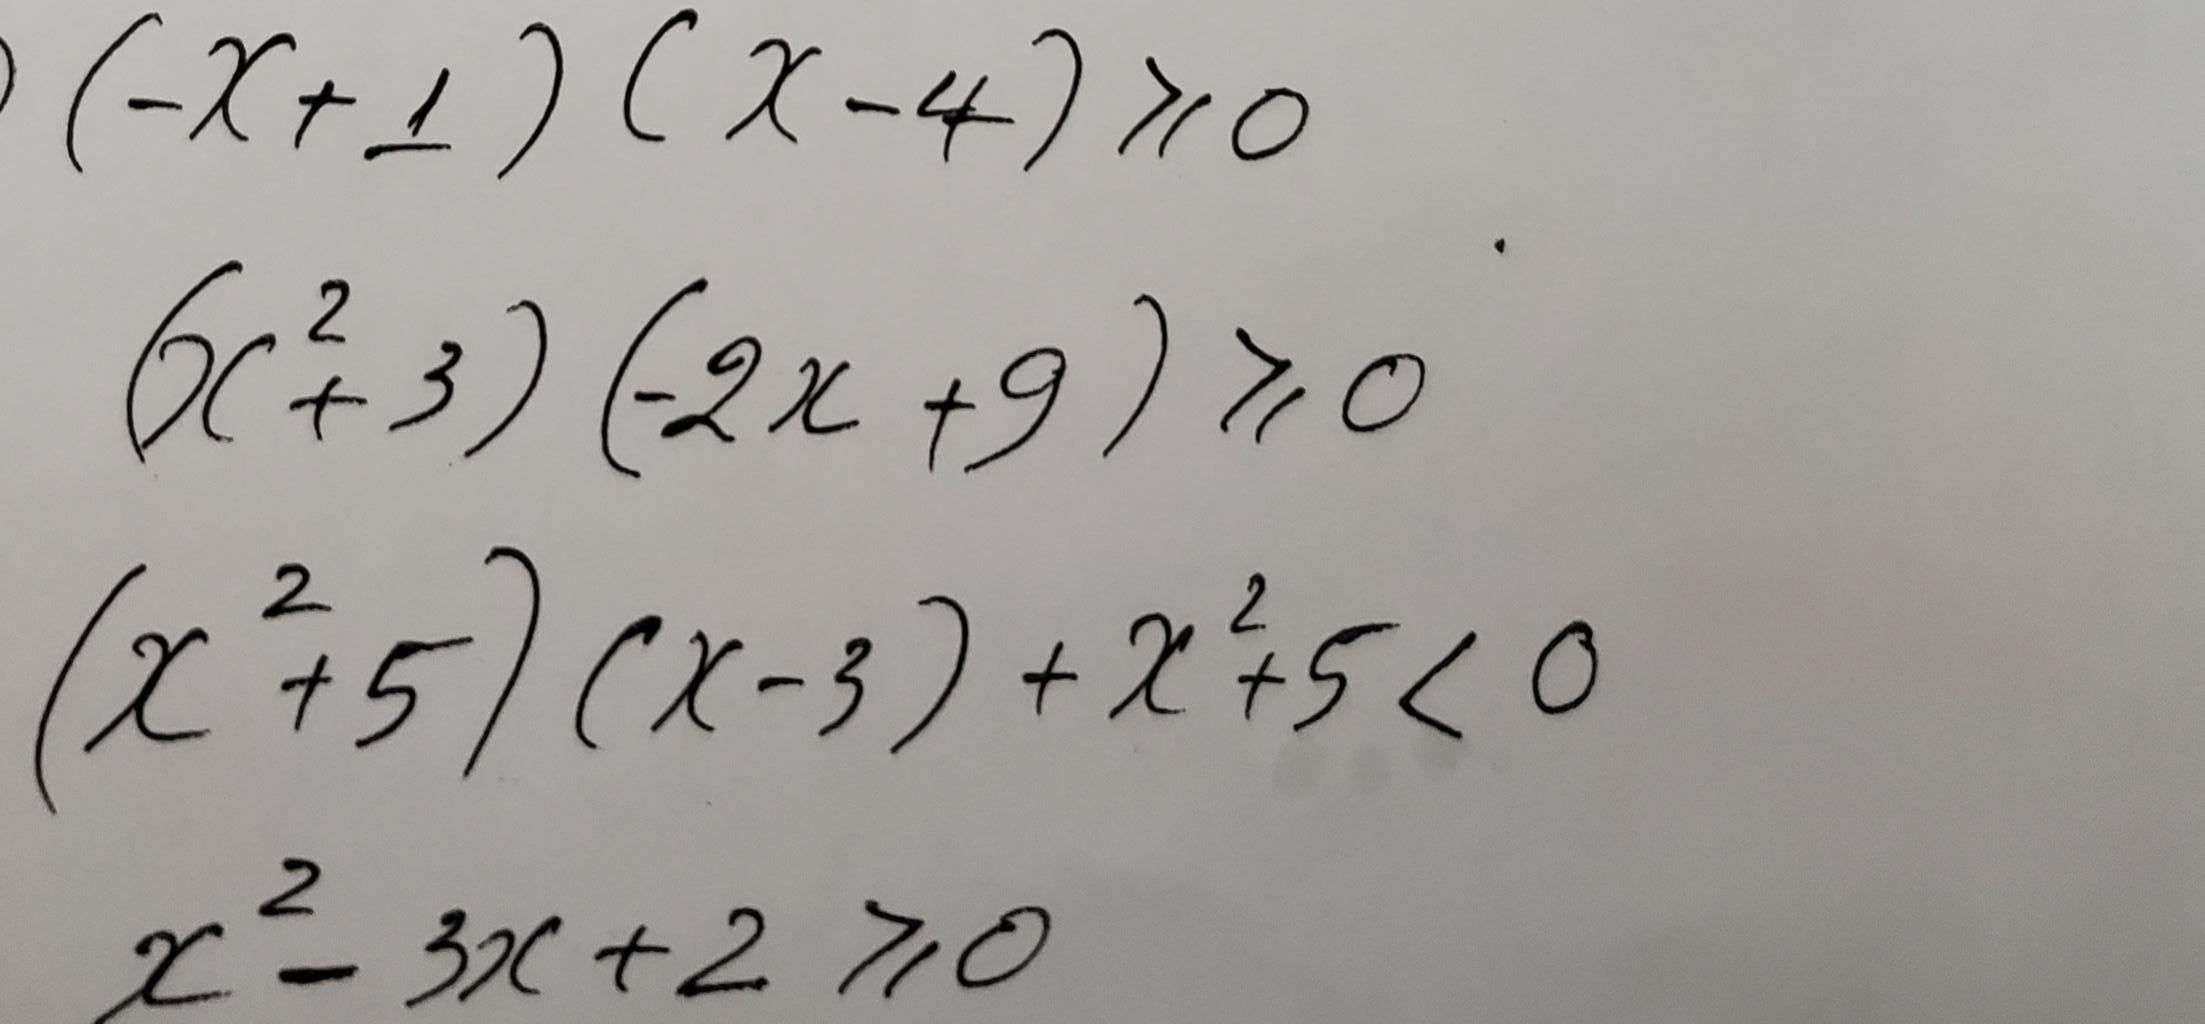 ) (-x+1)(x-4)⩾0
(x²+3)(-2x+9)⩾0
(x²+5)(x-3)+x²+5<0
x²-3x+2⩾0